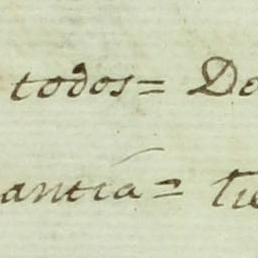 todos= Do
antía= tie